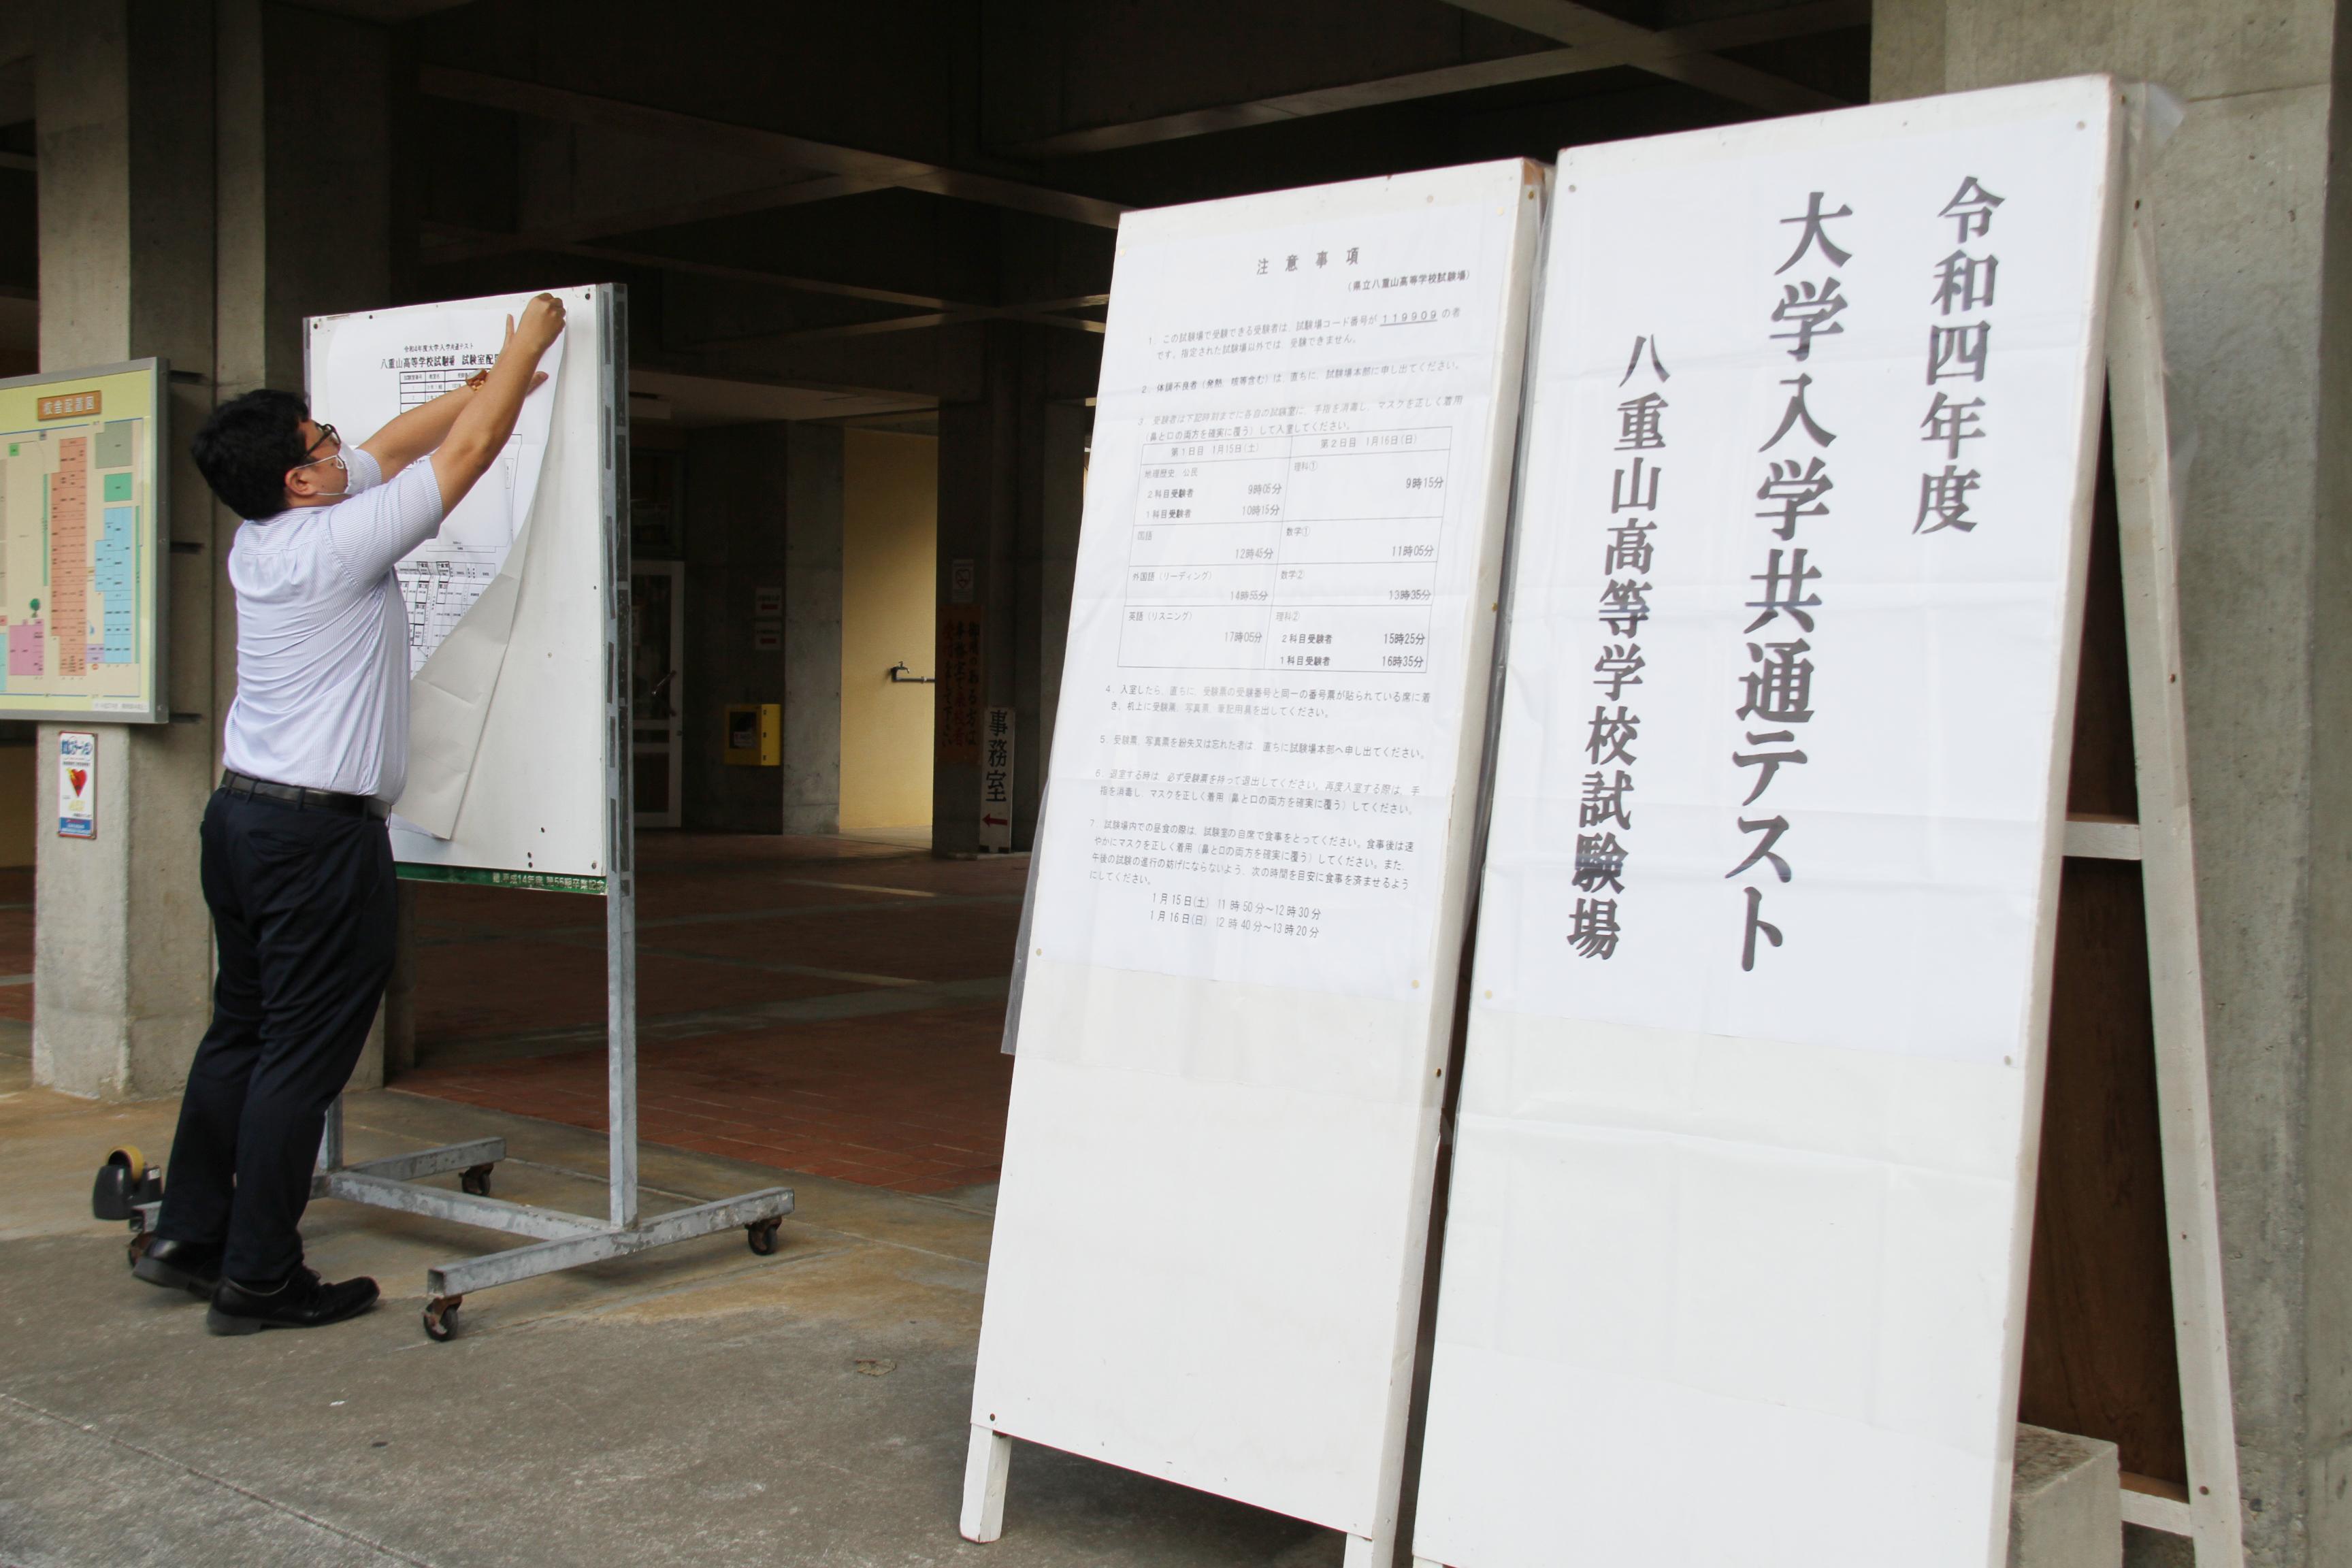 令和四年度
大学入学共通テスト
八重山高等学校試験場
注意事項
(県立八重山高等学校試験場)
1 この試験場で受験できる受験者は、試験場コード番号が 119909 の者
です。指定された試験場以外では、受験できません。
2 体調不良者(発熱、咳等含む)は、直ちに、試験場本部に申し出てください。
3 受験者は下記時刻までに各自の試験室に、手指を消毒し、マスクを正しく着用
(鼻と口の両方を確実に覆う)して入室してください。
第1日目 1月15日(土) 第2日目 1月16日(日)
地理歴史、公民 理科①
2科目受験者 9時05分 9時15分
1科目受験者 10時15分
国語 12時45分 数学① 11時05分
外国語(リーディング) 14時55分 数学② 13時35分
英語(リスニング) 17時05分 理科②
2科目受験者 15時25分
1科目受験者 16時35分
4 入室したら、直ちに、受験票の受験番号と同一の番号票が貼られている席に着
き、机上に受験票、写真票、筆記用具を出してください。
5 受験票、写真票を紛失又は忘れた者は、直ちに試験場本部へ申し出てください。
6 退室する時は、必ず受験票を持って退出してください。再度入室する際は、手
指を消毒し、マスクを正しく着用(鼻と口の両方を確実に覆う)してください。
7 試験場内での昼食の際は、試験室の自席で食事をとってください。食事後は速
やかにマスクを正しく着用(鼻と口の両方を確実に覆う)してください。また、
午後の試験の進行の妨げにならないよう、次の時間を目安に食事を済ませるよう
にしてください。
1月15日(土) 11時50分~12時30分
1月16日(日) 12時40分~13時20分
令和4年度大学入学共通テスト
八重山高等学校試験場 試験室配
校舎配置図
事務室
平成14年度 第55期卒業記念